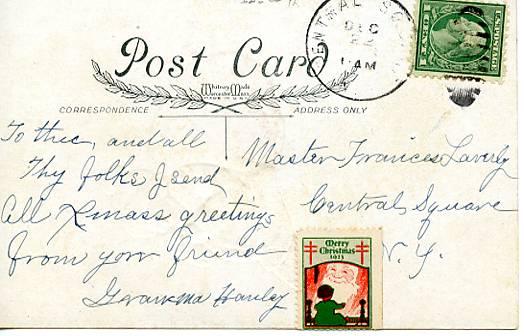 CENTRAL SQ
DEC
22
AM
U.S. POSTAGE
Post Card
Whitney Made
Worcester, Mass.
CORRESPONDENCE
ADDRESS ONLY
To thee, and all
Thy folks I send
All Xmass greetings
from your friend
Grandma Hanley
Master Frances Laverty
Central Square
N. Y.
Merry
Christmas